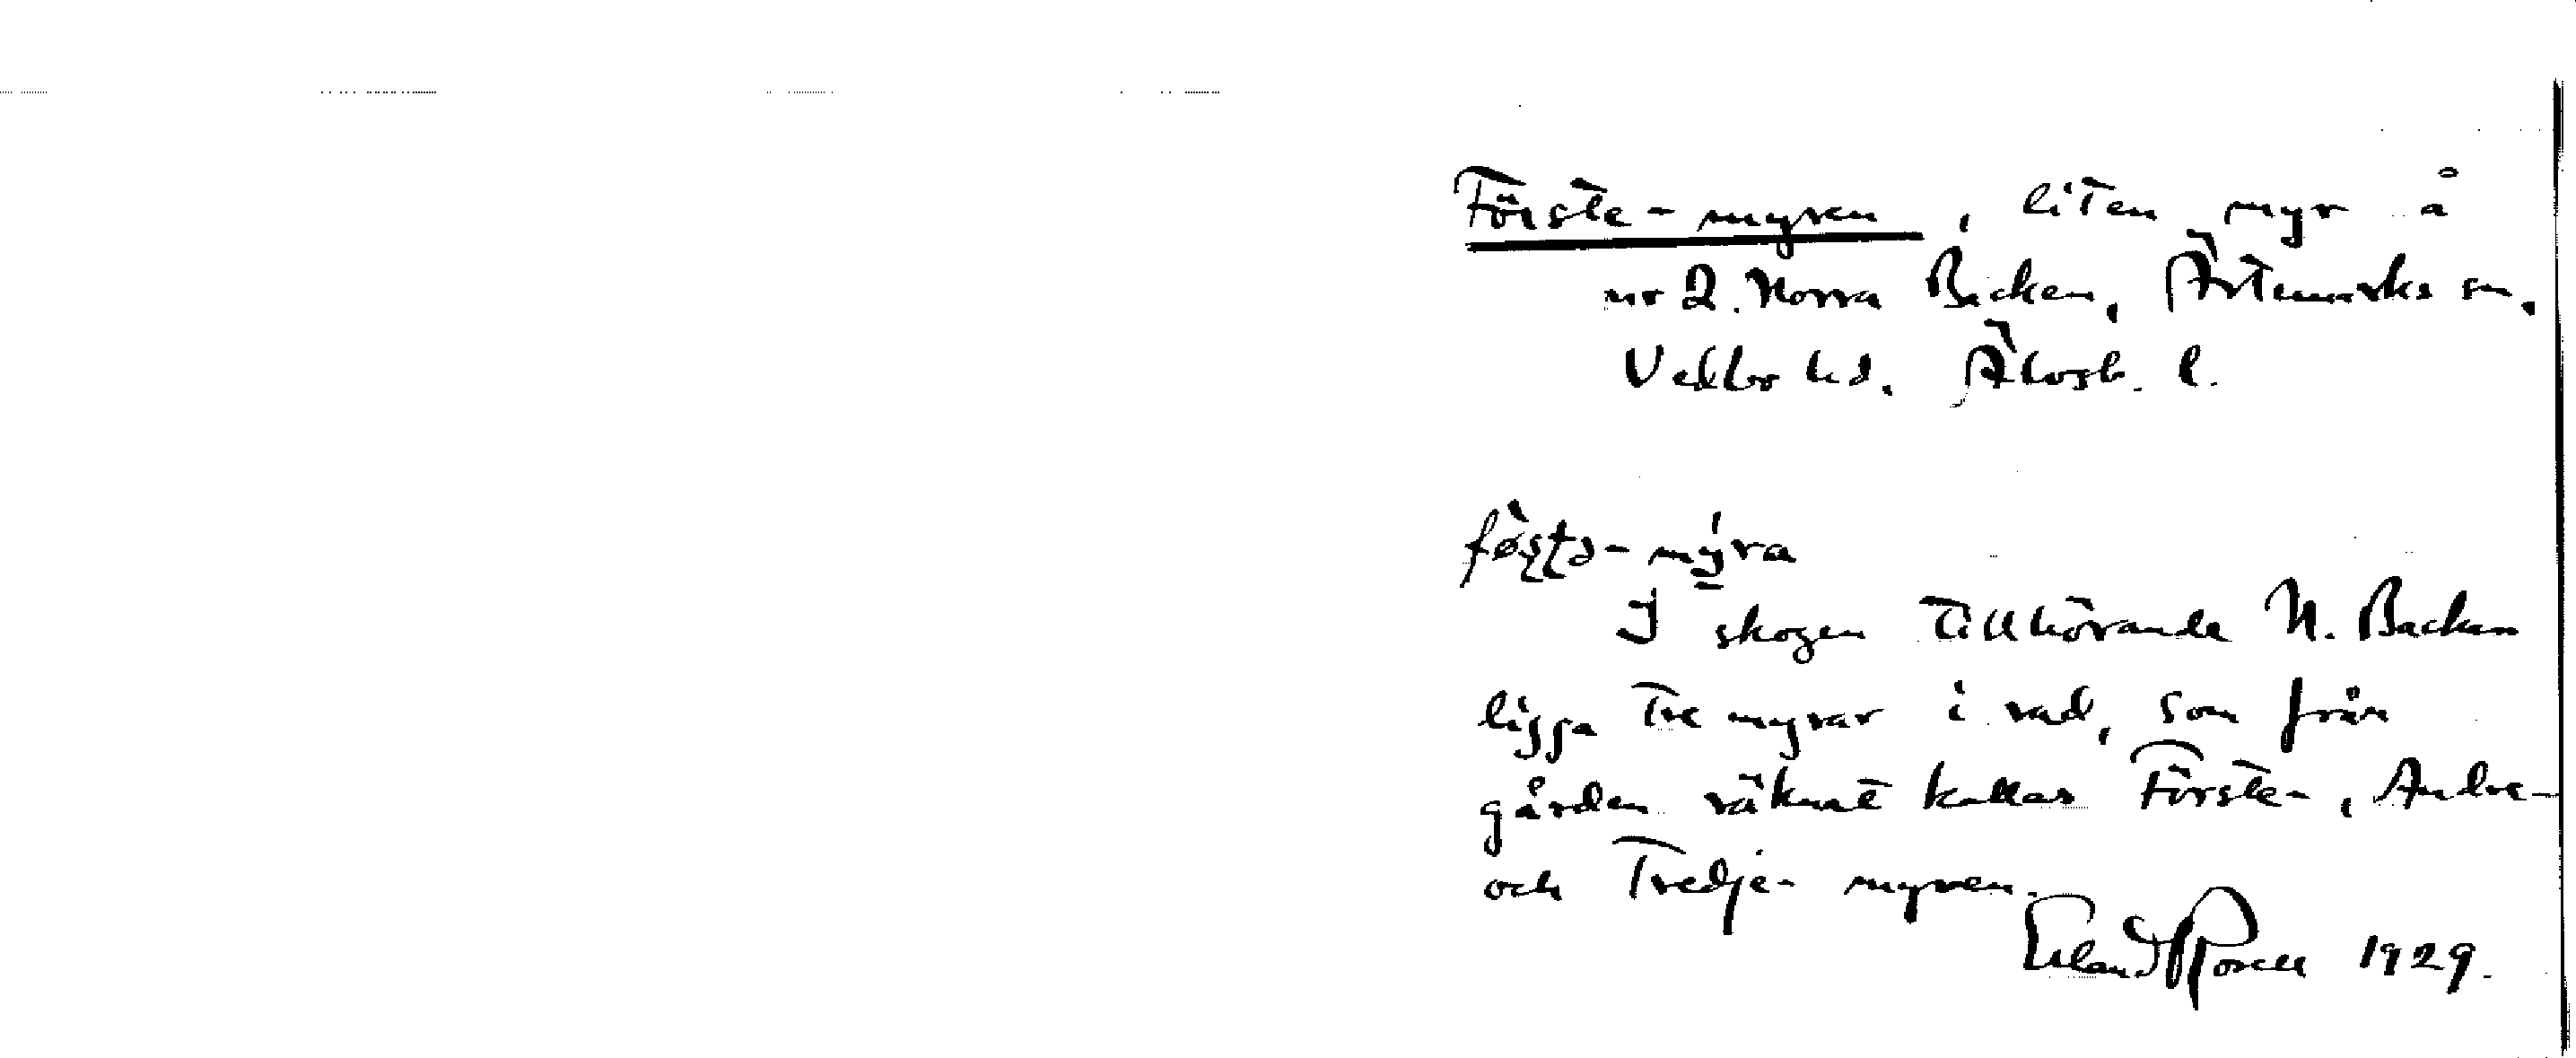 Förste-myren, liten myr å
nr 2. Norra Backen, Ärtemarks sn.
Vedbo hd. Älvsb. l.
fø̀ști-mýra
I skogen tillhörande N. Backen
ligga tre myrar i rad, som från
gården räknat kallas Förste-, Andre-
och Tredje-myren.
Erland Rosell 1929.